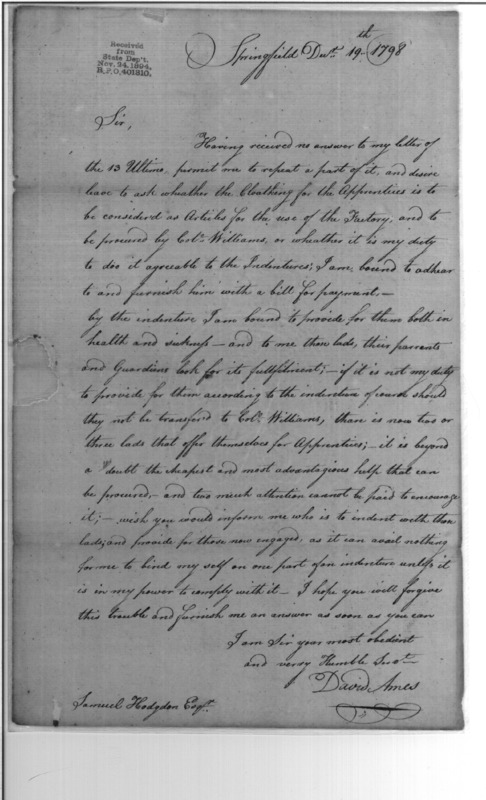 Received
from
State Dep't.
Nov. 24, 1894.
R.P.O. 401310.
Springfield Decr. 19th 1798
Sir,
Having received no answer to my letter of
the 13 Ultimo, permit me to repeat a part of it, and desire
leave to ask wheather the Cloathing for the Apprentices is to
be considerd as Articles for the use of the Factory, and to
be procured by Colo. Williams, or wheather it is my duty
to doo it agreable to the Indentures; I am bound to adhear
to and furnish him with a bill for payment,—
by the indenture I am bound to provide for them both in
health and sickness — and to me them lads, their parrents
and Guardians look for its fullfilment; — if it is not my duty
to provide for them according to the indenture of course should
they not be transferd to Colo. Williams, than is now two or
three lads that offer themselves for Apprentices; — it is beyond
a doubt the cheapest and most advantagious help that can
be procured, and two much attention cannot be paid to encourage
it; — wish you would inform me who is to indent with them
lads, and provide for those now engaged, as it can avail nothing
for me to bind my self on one part of an indenture unless it
is in my power to comply with it — I hope you will forgive
this trouble and furnish me an answer as soon as you can
I am Sir your most obedient
and verry Humble Servt.
David Ames
Samuel Hodgdon Esqr.